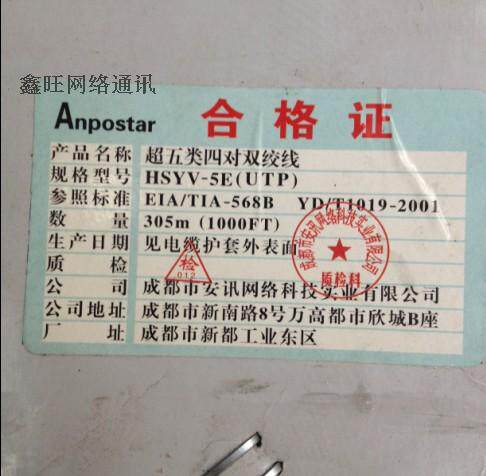 鑫旺网络通讯
Anpostar 合格证
产品名称 超五类四对双绞线
规格型号 HSYV-5E(UTP)
参照标准 EIA/TIA-568B YD/T1019-2001
数量 305m (1000FT)
生产日期 见电缆护套外表面
质检 检 012
成都市安讯网络科技实业有限公司 质检科
公司 成都市安讯网络科技实业有限公司
公司地址 成都市新南路8号万高都市欣城B座
厂址 成都市新都工业东区